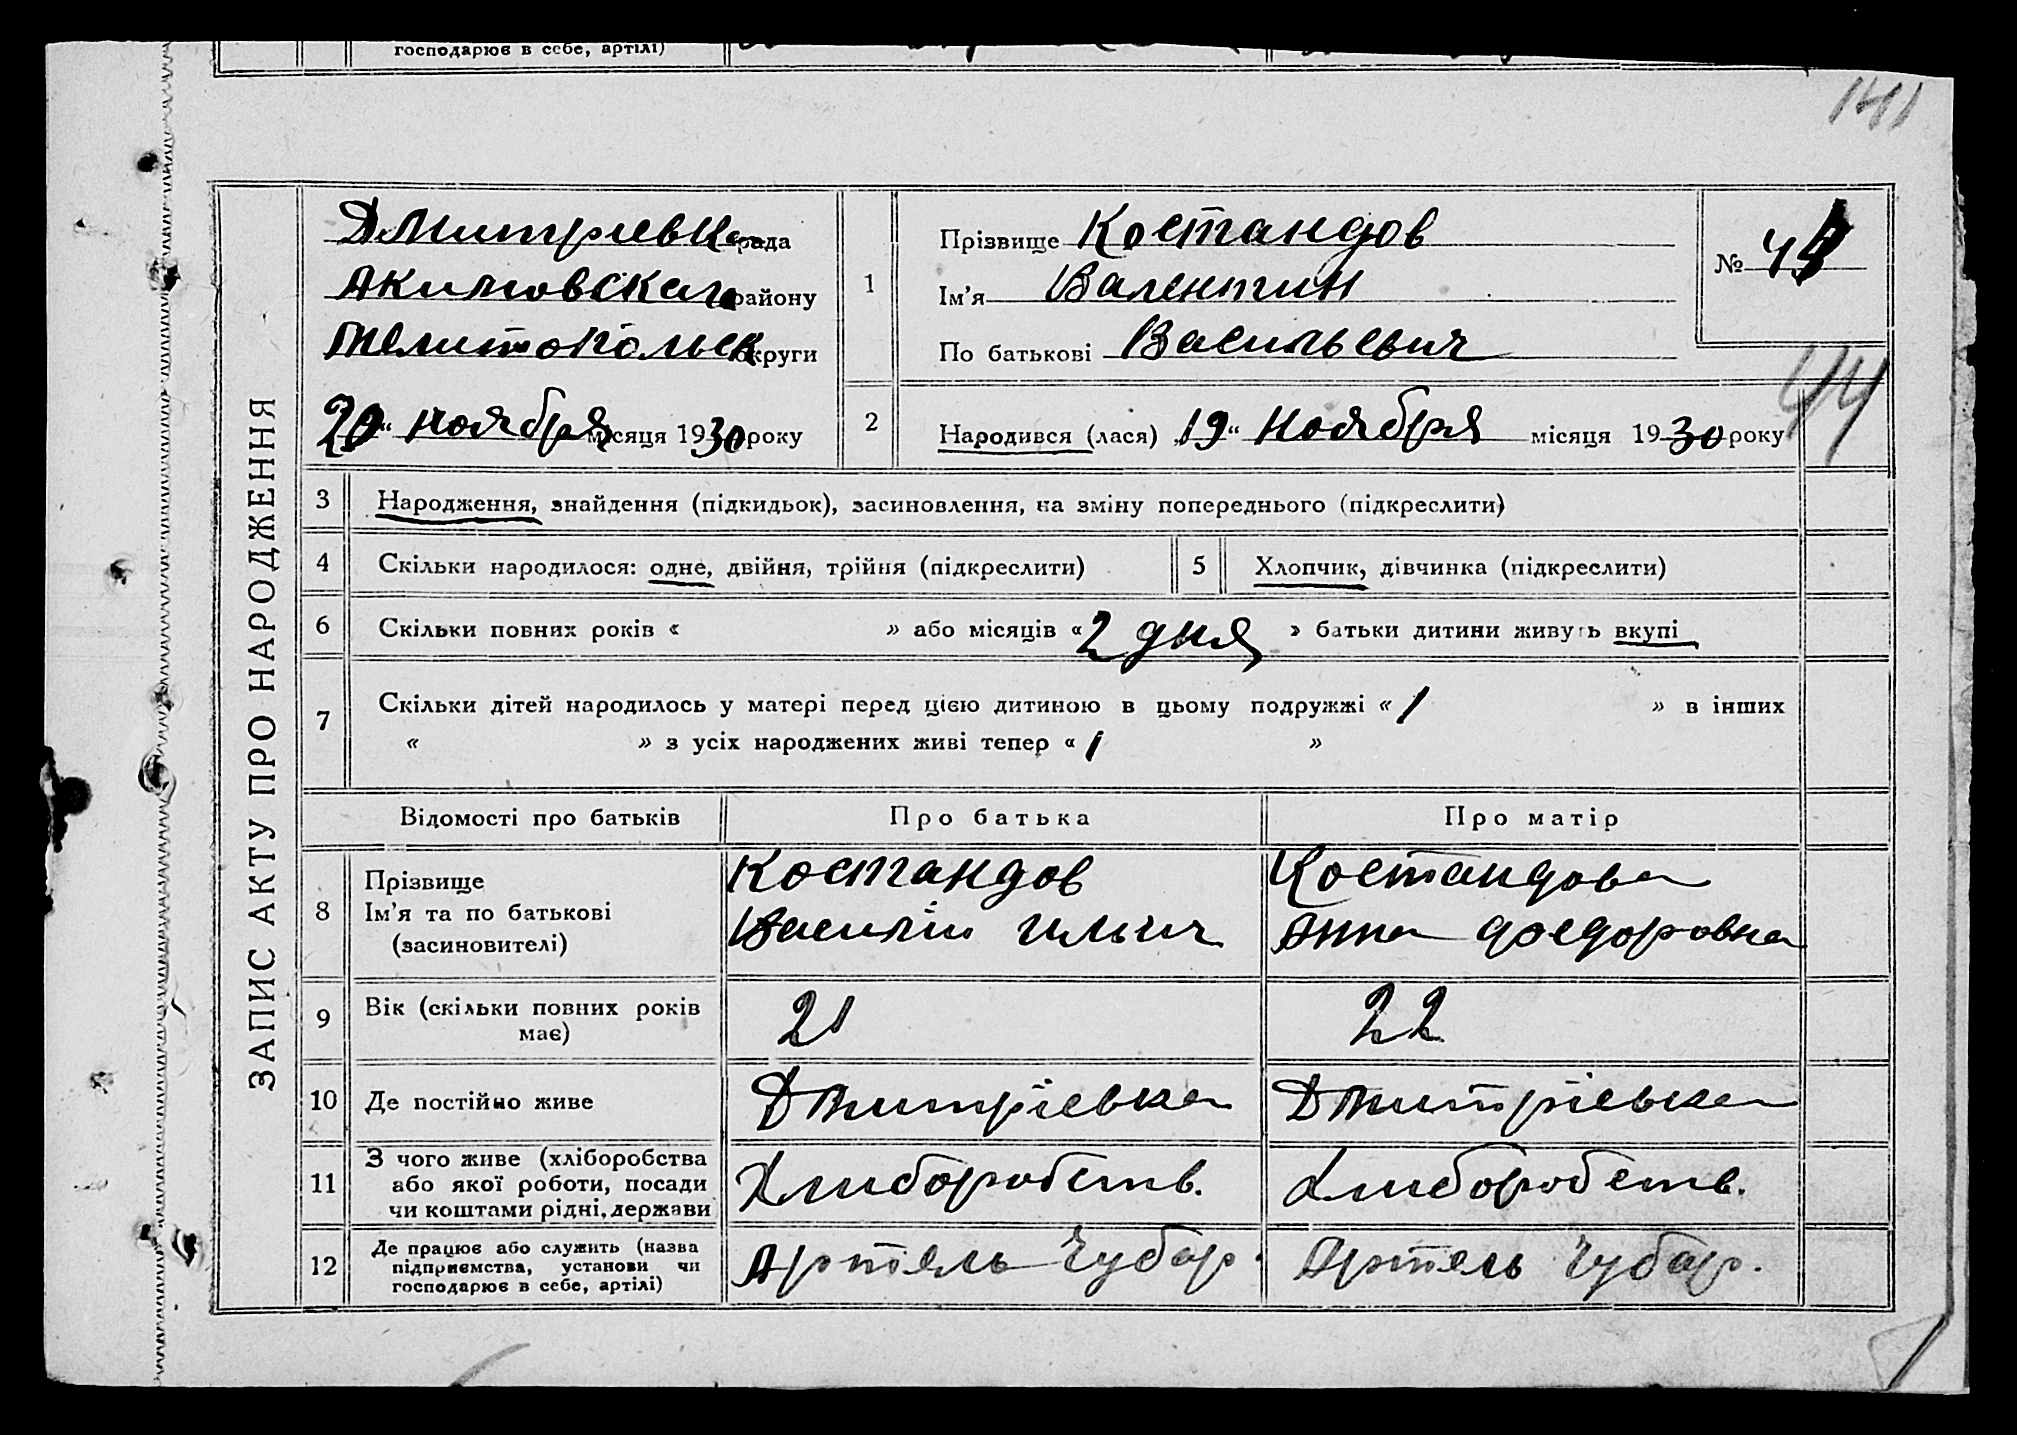 господарює в себе, артілі)
141
ЗАПИС АКТУ ПРО НАРОДЖЕННЯ
Дмитриевка рада
Акимовская району
Мелитопольск округи
20 " ноября місяця 1930 року
1
Прізвище Костандов
Ім'я Валентин
По батькові Васильевич
№
44
2
Народився (лася) 19 " Ноября місяця 1930 року
3 Народження, знайдення (підкидьок), засиновлення, на зміну попереднього (підкреслити)
4 Скільки народилося: одне, двійня, трійня (підкреслити) 5 Хлопчик, дівчинка (підкреслити)
6 Скільки повних років « » або місяців « 2 дня » батьки дитини живуть вкупі
7 Скільки дітей народилось у матері перед цією дитиною в цьому подружжі « 1 » в інших
« » з усіх народжених живі тепер « 1 »
Відомості про батьків Про батька Про матір
8 Прізвище
Ім'я та по батькові
(засиновителі)
Костандов
Василій Ильич
Костандова
Анна Федоровна
9 Вік (скільки повних років
має)
21 22
10 Де постійно живе Дмитріевка Дмитріевка
11 З чого живе (хліборобства
або якої роботи, посади
чи коштами рідні, держави
Хлиборобств. Хлиборобств.
12 Де працює або служить (назва
підприємства, установи чи
господарює в себе, артілі)
Артель Чубар. Артель Чубар.